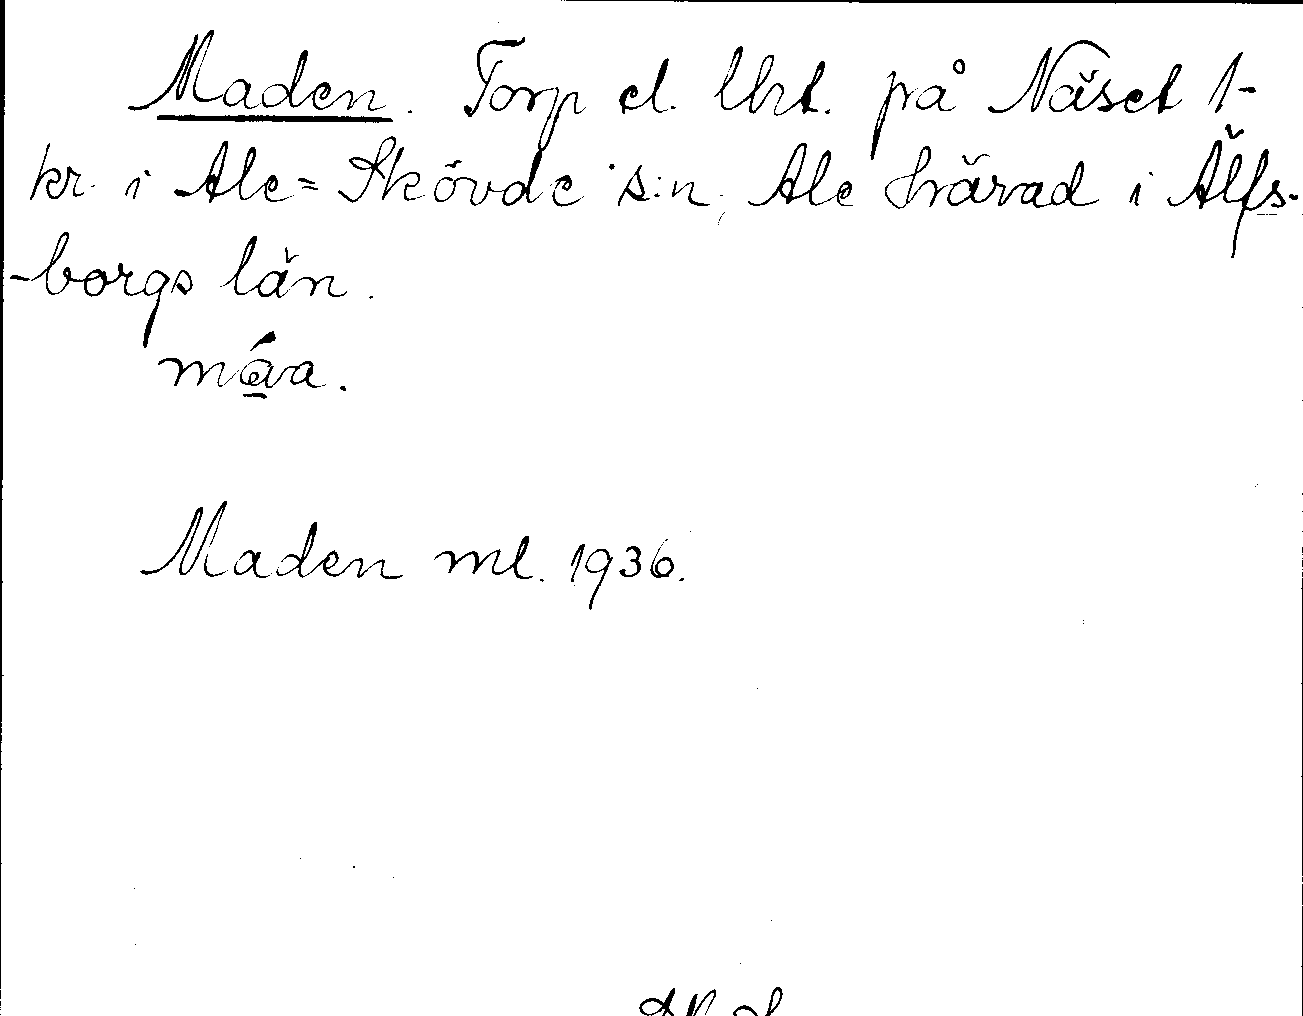 Maden. Torp el. lht. på Näset 1-
kr. i Ale=Skövde s:n, Ale härad i Älfs-
-borgs län.
máva.
Maden ml. 1936.